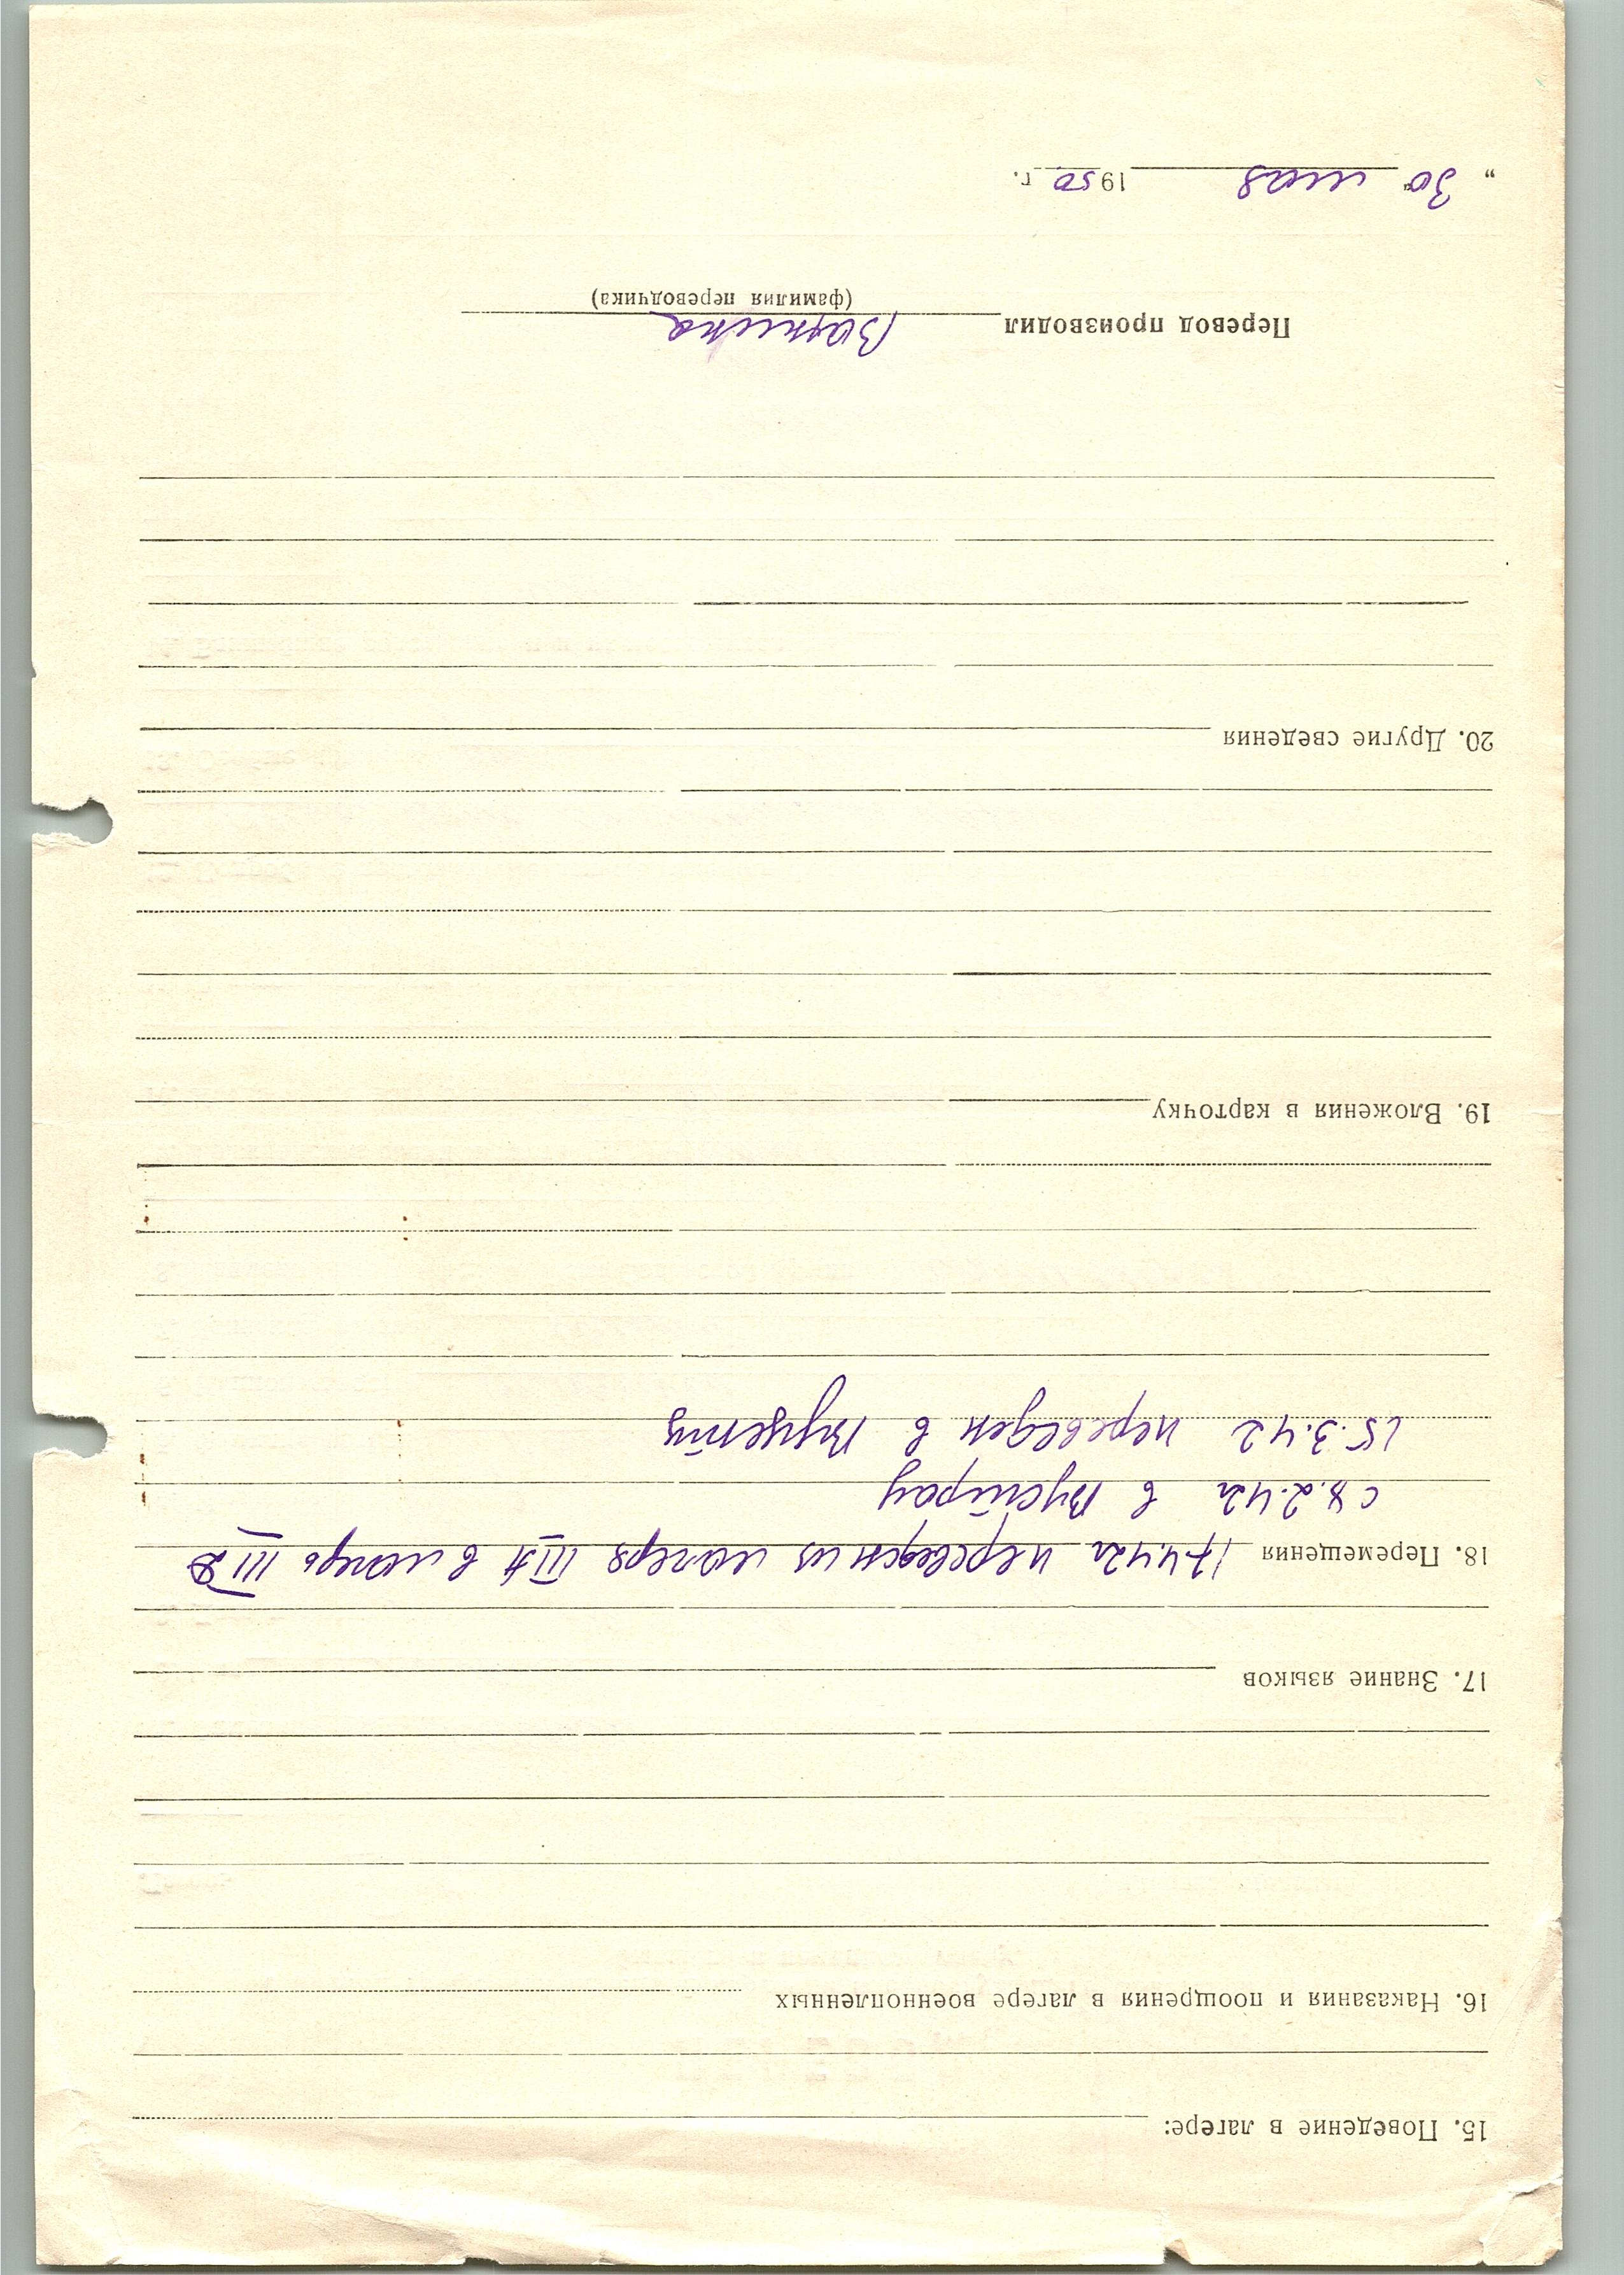 15. Поведение в лагере:
16. Наказания и поощрения в лагере военнопленных
17. Знание языков
18. Перемещения 17.4.42г переведен из лагеря III А в лагерь III D
с 8.2.42г в Вустрау
15.3.42 переведен в
19. Вложения в карточку
20. Другие сведения
Перевод производил
(фамилия переводчика)
„ 30 " мая 1950 г.